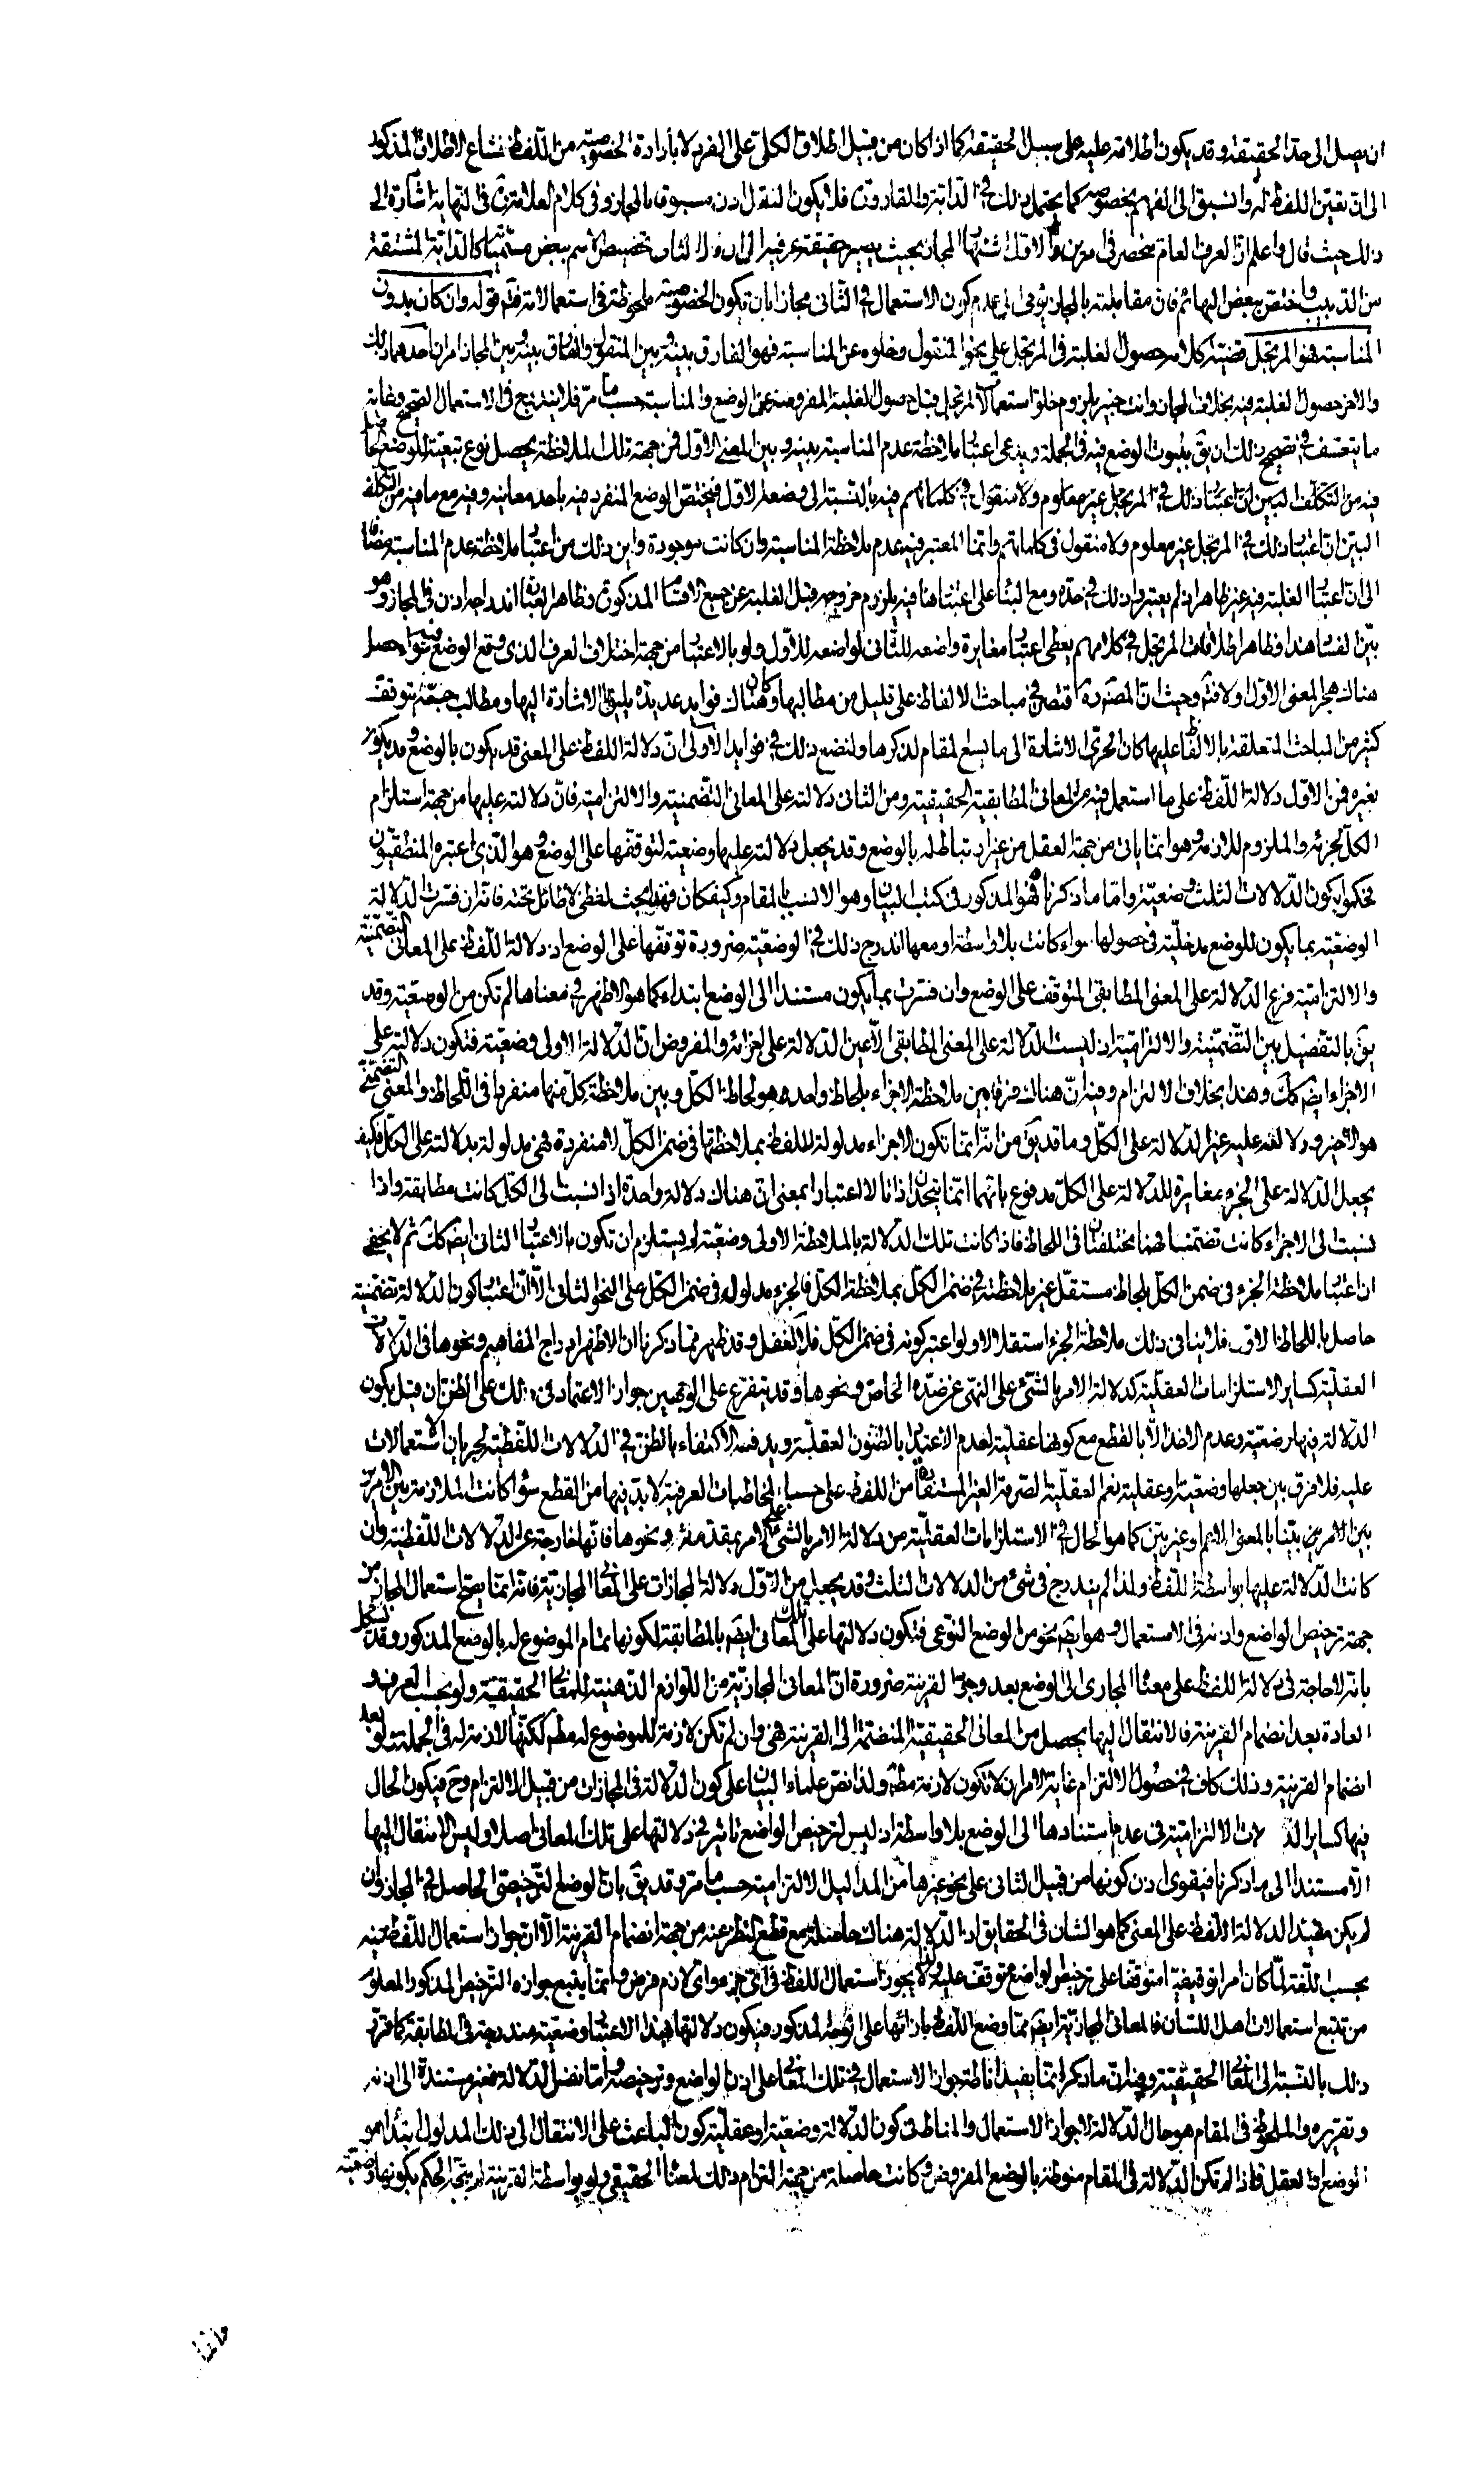 ان يصل الى حد الحقيقة وقد يكون اطلاقه عليه على سبيل الحقيقة كما اذا كان من قبيل اطلاق الكلى على الفرد لا بارادة الخصوصية من اللفظ فشاع الاطلاق المذكور
الى ان تعين اللفظ له وانسبق الى الفهم بخصوصه كما يحتمل ذلك فى الدابة والقارورة فلا يكون النقل اذن مسبوقا بالمجاز وفى كلام العلامة ره فى النهاية اشارة الى
ذلك حيث قال واعلم ان العرف العام منحصر فى امرين الاول اشتهار المجاز بحيث يصير حقيقة عرفية الى ان قال الثانى تخصيص الاسم ببعض مسمياته كالدابة المشتقة
من الدبيب واختص ببعض البهائم فان مقابلته بالمجاز يومى الى عدم كون الاستعمال فى الثانى مجازا بان تكون الخصوصية ملحوظة فى استعمالاته قوله وان كان بدون
المناسبة فهو المرتجل قضية كلامه حصول الغلبة فى المرتجل على نحو المنقول وخلوه عن المناسبة فهو الفارق بينه وبين المنقول والفارق بينه وبين المجاز امران احدهما ذلك
والاخر حصول الغلبة فيه بخلاف المجاز وانت خبير بلزوم خلو استعمال المرتجل قبل حصول الغلبة المفروضة عن الوضع والمناسبة حسب ما مر فلا يندرج فى الاستعمال الصحيح وغاية
ما يتعسف فى تصحيح ذلك ان يق بثبوت الوضع فيه فى الجملة ويدعى اعتبار ملاحظة عدم المناسبة بينه وبين المعنى الاول فمن جهة تلك الملاحظة يحصل نوع تبعية للوضع
فيه من التكلف البين ان اعتبار ذلك فى المرتجل غير معلوم ولا منقول فى كلماتهم فيه بالنسبة الى وضعه الاول فيختص الوضع المنفرد فيه باحد معانيه وفيه مع ما فيه من التكلف
البين ان اعتبار ذلك فى المرتجل غير معلوم ولا منقول فى كلماتهم وانما المعتبر فيه عدم ملاحظة المناسبة وان كانت موجودة واين ذلك من اعتبار ملاحظة عدم المناسبة مضافا
الى ان اعتبار الغلبة فيه غير ظاهر اذ لم يعتبروا ذلك فى حده ومع البناء على اعتبارها فيه يلزم خروجه قبل الغلبة عن جميع الاقسام المذكورة وظاهر العبارة اندراجه اذن فى المجاز وهو
بين الفساد هذا وظاهر اطلاقات المرتجل فى كلامهم يعطى اعتبار مغايرة واضعه للثانى لواضعه للاول ولو بالاعتبار من جهة اختلاف العرف الذى وقع الوضع فيه سواء حصل
هناك هجر المعنى الاول اولا فتم وحيث ان المصنف ره اقتصر فى مباحث الالفاظ على قليل من مطالبها وكان هناك فوايد عديدة يليق الاشارة اليها ومطالب جمة يتوقف
كثير من المباحث المتعلقة بالالفاظ عليها كان الحرى الاشارة الى ما يسع المقام لذكرها ولنضع ذلك فى فوايد الاولى ان دلالة اللفظ على المعنى قد يكون بالوضع وقد يكون
بغيره فمن الاول دلالة اللفظ على ما استعمل فيه من المعانى المطابقية الحقيقية ومن الثانى دلالته على المعانى التضمنية والالتزامية فان دلالته عليها من جهة استلزام
الكل لجزئه والملزوم للازمه وهو انما ياتى من جهة العقل من غير ارتباط له بالوضع وقد يجعل دلالته عليها وضعية لتوقفها على الوضع وهو الذى اعتبره المنطقيون
فحكموا بكون الدلالات الثلث وضعية واما ما ذكرناه فهو المذكور فى كتب البيان وهو الانسب بالمقام وكيف كان فهذا بحث لفظى لا طائل تحته فانه ان فسرت الدلالة
الوضعية بما يكون للوضع مدخلية فى حصولها سواء كانت بلا واسطة او معها اندرج ذلك فى الوضعية ضرورة توقفها على الوضع اذ دلالة اللفظ على المعانى التضمنية
والالتزامية فرع الدلالة على المعنى المطابقى المتوقف على الوضع وان فسرت بما يكون مستندا الى الوضع ابتداء كما هو الاظهر فى معناها لم تكن من الوضعية وقد
يق بالتفصيل بين التضمنية والالتزامية اذ ليست الدلالة على المعنى المطابقى الا عين الدلالة على اجزائه والمفروض ان الدلالة الاولى وضعية فتكون دلالته على
الاجزاء ايضا كك وهذا بخلاف الالتزام وفيه ان هناك فرقا بين ملاحظة الاجزاء بلحاظ واحد هو لحاظ الكل وبين ملاحظة كل منها منفردا فى اللحاظ والمعنى التضمنى
هو الاخير ودلالته عليه غير الدلالة على الكل وما قد يق من انه انما تكون الاجزاء مدلولة للفظ بملاحظتها فى ضمن الكل لا منفردة فهى مدلولة بدلالته على الكل فكيف
يجعل الدلالة على الجزء مغايرة للدلالة على الكل مدفوع بانهما انما يتحدان ذاتا لا اعتبارا بمعنى ان هناك دلالة واحدة اذا نسبت الى الكل كانت مطابقة واذا
نسبت الى الاجزاء كانت تضمنا فهما مختلفان فى اللحاظ فاذا كانت تلك الدلالة بالملاحظة الاولى وضعية لم يستلزم ان تكون بالاعتبار الثانى ايضا كك ثم لا يخفى
ان اعتبار ملاحظة الجزء فى ضمن الكل بلحاظ مستقل غير ملاحظته فى ضمن الكل بملاحظة الكل فالجزء مدلول فى ضمن الكل على النحو الثانى الا ان اعتبار كون الدلالة تضمنية
حاصل باللحاظ الاول فلا ينافى ذلك ملاحظة الجزء استقلالا ولو اعتبر كونه فى ضمن الكل فلا تغفل وقد ظهر بما ذكرنا ان الاظهر ادراج المفاهيم ونحوها فى الدلالات
العقلية كساير الاستلزامات العقلية كدلالة الامر بالشئ على النهى عن ضده الخاص ونحوها وقد يتفرع على الوجهين جواز الاعتماد فى ذلك على الظن ان قيل بكون
الدلالة فيها وضعية وعدم الاخذ الا بالقطع مع كونها عقلية لعدم الاعتبار بالظنون العقلية ويدفعه الاكتفاء بالظن فى الدلالات اللفظية لجريان الاستعمالات
عليه فلا فرق بين جعلها وضعية او عقلية نعم العقلية الصرفة الغير المستفادة من اللفظ على حسب المخاطبات العرفية لا بد فيها من القطع سواء كانت الملازمة بين الامرين
بين الامرين بينا بالمعنى الاعم او غير بين كما هو الحال فى الاستلزامات العقلية من دلالة الامر بالشئ على الامر بمقدمته ونحوها فانها خارجة عن الدلالات اللفظية وان
كانت الدلالة عليها بواسطة اللفظ ولذا لم يندرج فى شئ من الدلالات الثلث وقد يجعل من الاول دلالة المجازات على المعانى المجازية فانه انما يصح استعمال المجاز من
جهة ترخيص الواضع واذنه فى الاستعمال وهو ايضا نحو من الوضع النوعى فتكون دلالتها على تلك المعانى ايضا بالمطابقة لكونها تمام الموضوع له بالوضع المذكور وقد يشكل
بانه لا حاجة فى دلالة اللفظ على معناه المجازى الى الوضع بعد وجود القرينة ضرورة ان المعانى المجازية من اللوازم الذهنية للمعانى الحقيقية ولو بحسب العرف و
العادة بعد انضمام القرينة فالانتقال اليها يحصل من المعانى الحقيقية المنضمة الى القرينة فهى وان لم تكن لازمة للموضوع له مطلقا لكنها لازمة له فى الجملة ولو بعد
انضمام القرينة وذلك كاف فى حصول الالتزام غاية الامر ان لا تكون لازمة مطلقا ولذا نص علماء البيان على كون الدلالة فى المجازات من قبيل الالتزام وح فيكون الحال
فيها كساير الدلالات الالتزامية فى عدم استنادها الى الوضع بلا واسطة اذ ليس لترخيص الواضع تاثير فى دلالتها على تلك المعانى اصلا وليس الانتقال اليها
الا مستندا الى ما ذكرنا فيقوى اذن كونها من قبيل الثانى على نحو غيرها من المداليل الالتزامية حسب ما مر وقد يق بان الوضع الترخيصى الحاصل فى المجاز وان
لم يكن مفيدا لدلالة اللفظ على المعنى كما هو الشان فى الحقايق اذ الدلالة هناك حاصلة مع قطع النظر عنه من جهة انضمام القرينة الا ان جواز استعمال اللفظ فيه
بحسب اللغة لما كان امرا توقيفيا متوقفا على ترخيص الواضع متوقف عليه ولذا لا يجوز استعمال اللفظ فى اى جزء واى لازم فرض وانما يتبع جوازه الترخيص المذكور المعلوم
من تتبع استعمالات اهل اللسان فالمعانى المجازية ايضا مما وضع اللفظ بازائها على الوجه المذكور فيكون دلالتها بهذا الاعتبار وضعية مندرجة فى المطابقة كما عرف
ذلك بالنسبة الى المعانى الحقيقية وفيه ان ما ذكر انما يفيد اناطة جواز الاستعمال فى تلك المعانى على اذن الواضع وترخيصه واما نفس الدلالة فغير مستندة الى اذنه
وتقريره والملحوظ فى المقام هو حال الدلالة لا جواز الاستعمال والمناط فى كون الدلالة وضعية او عقلية كون الباعث على الانتقال الى ذلك المدلول ابتداء هو
الوضع او العقل فاذا لم تكن الدلالة فى المقام منوطة بالوضع المفروض وكانت حاصلة من جهة التزام ذلك لمعناه الحقيقى ولو بواسطة القرينة لم يتجه الحكم بكونها وضعية